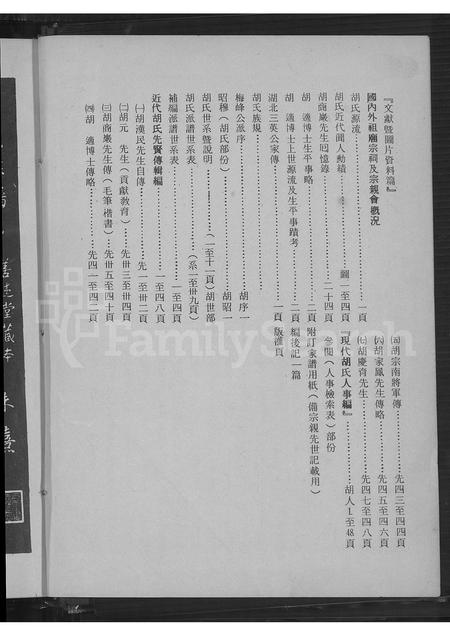 『文獻暨圖片資料篇』
國內外祖廟宗祠及宗親會概況
胡氏源流……一頁
胡氏近代聞人勳績……圖一至四頁
胡商巖先生回憶錄……二十四頁
胡適博士生平事略……二頁
胡適博士上世源流及生平事蹟考……二頁
湖北三英公家傳……一頁
胡氏族規……一頁
梅峰公派序……胡序一
昭穆(胡氏部份)……胡昭一
胡氏世系暨說明……(一至十一頁)胡世部
胡氏派譜世系表……(系一至卅九頁)
補編派譜世系表……一至四頁
近代胡氏先賢傳輯編……一至四八頁
㈠胡漢民先生自傳……先一至卅二頁
㈡胡元先生(貢獻教育)……先卅三至卅四頁
㈢胡商巖先生傳(毛筆楷書)……先卅五至四十頁
㈣胡適博士傳略……先四一至四二頁
㈤胡宗南將軍傳……先四三至四四頁
㈥胡家鳳先生傳略……先四五至四六頁
㈦胡慶育先生……先四七至四八頁
『現代胡氏人事編』……胡人1至48頁
參閱(人事檢索表)部份
附訂家譜用紙(備宗親先世記載用)
編後記一篇
版權頁
善述堂藏本
FamilySearch